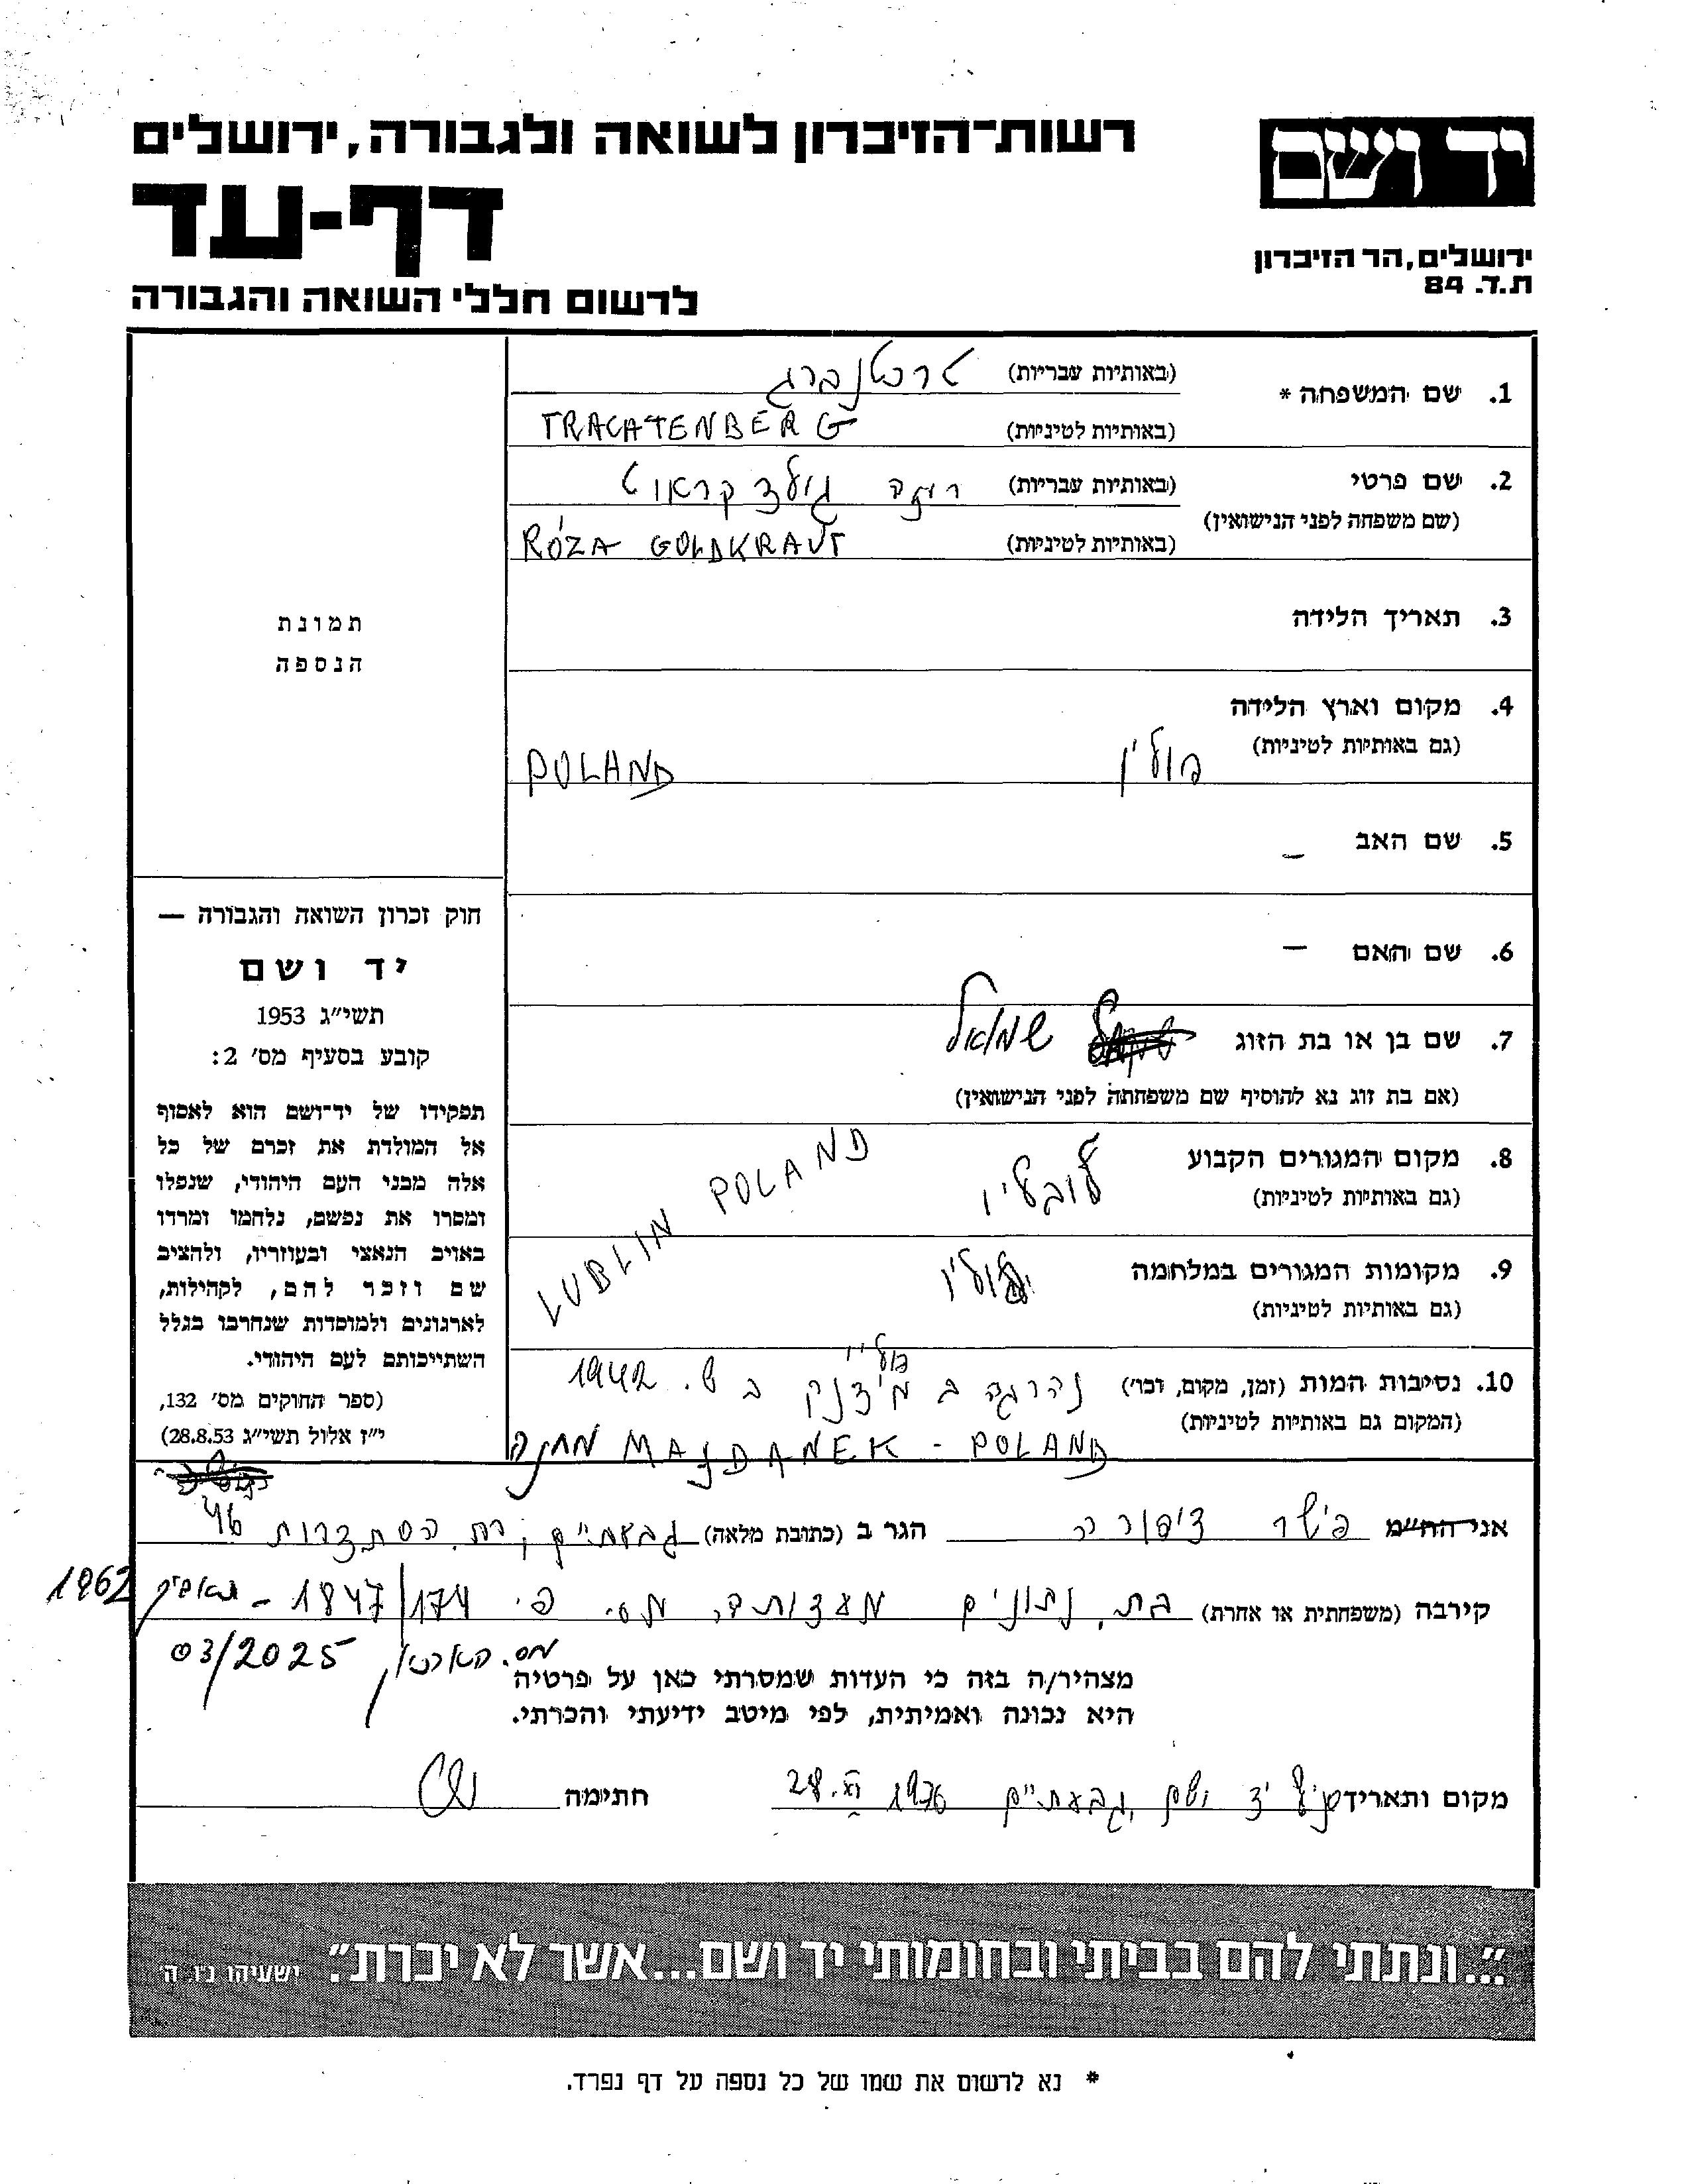 רשות־הזיכרון לשואה ולגבורה, ירושלים
יד ושם
דף-עד
ירושלים, הר הזיכרון
ת.ד. 84
לרשום חללי השואה והגבורה
1. שם המשפחה * (באותיות עבריות) טרכטנברג
(באותיות לטיניות) TRACATENBERG
2. שם פרטי (באותיות עבריות) רוזה גולדקראוט
(שם משפחה לפני הנישואין)
(באותיות לטיניות) RÓZA GOLDKRAUT
3. תאריך הלידה
תמונת
הנספה
4. מקום וארץ הלידה
(גם באותיות לטיניות) פולין POLAND
5. שם האב –
6. שם האם –
7. שם בן או בת הזוג שמואל
(אם בת זוג נא להוסיף שם משפחתה לפני הנישואין)
8. מקום המגורים הקבוע לובלין
(גם באותיות לטיניות) LUBLIN POLAND
9. מקומות המגורים במלחמה
(גם באותיות לטיניות)
10. נסיבות המות (זמן, מקום, וכו') נהרגה ב מידנק פולין ב ש. 1942
(המקום גם באותיות לטיניות)
מחנה MAJDANEK - POLAND
חוק זכרון השואה והגבורה —
יד ושם
תשי״ג 1953
קובע בסעיף מס׳ 2:
תפקידו של יד־ושם הוא לאסוף
אל המולדת את זכרם של כל
אלה מבני העם היהודי, שנפלו
ומסרו את נפשם, נלחמו ומרדו
באויב הנאצי ובעוזריו, ולהציב
שם וזכר להם, לקהילות,
לארגונים ולמוסדות שנחרבו בגלל
השתייכותם לעם היהודי.
(ספר החוקים מס׳ 132,
י״ז אלול תשי״ג 28.8.53)
אני הח״מ פישר ציפורה הגר ב (כתובת מלאה) גבעתיים, רח. הסתדרות 46
קירבה (משפחתית או אחרת) בת, נתונים מעדותה מס. פ. 1847/174 - 1962
מס. 03/2025
מצהיר/ה בזה כי העדות שמסרתי כאן על פרטיה
היא נכונה ואמיתית, לפי מיטב ידיעתי והכרתי.
מקום ותאריך יד ושם, גבעתיים 1976 .XI .28 חתימה
״...ונתתי להם בביתי ובחומותי יד ושם...אשר לא יכרת״. ישעיהו נ״ו, ה׳
* נא לרשום את שמו של כל נספה על דף נפרד.